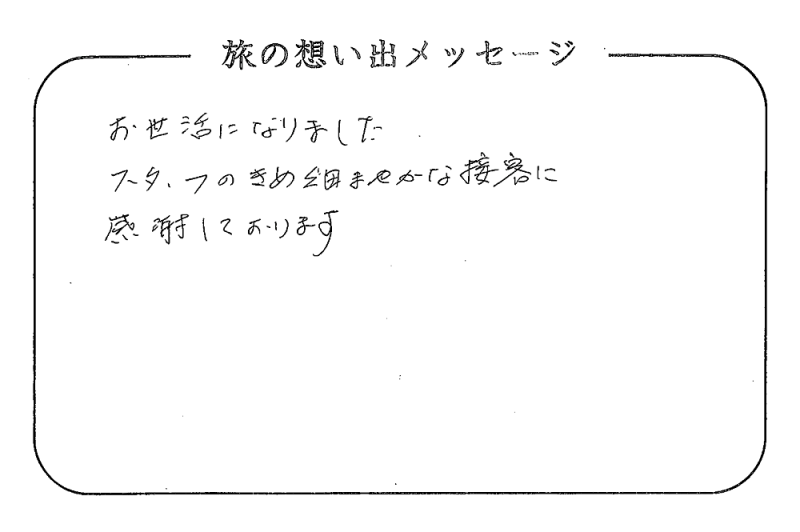 旅の想い出メッセージ
お世活になりました
スタッフのきめ細まやかな接客に
感謝しております